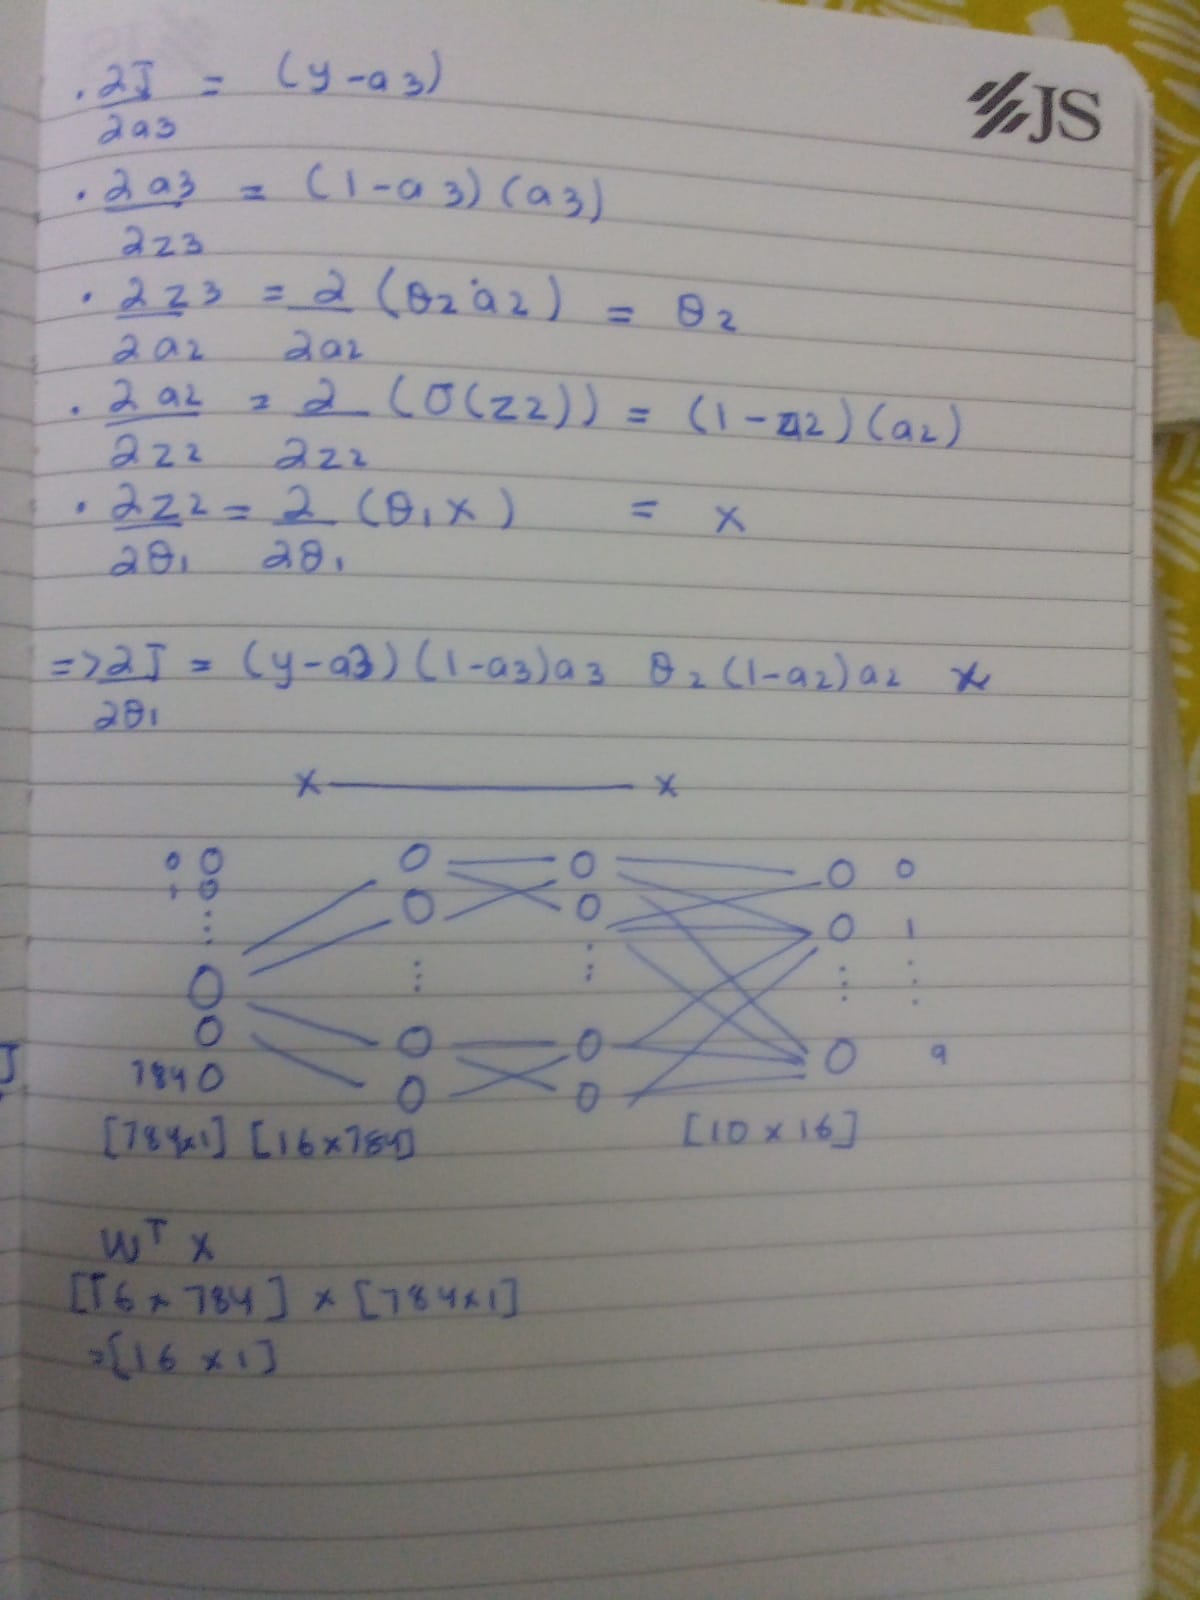 JS
. ∂J/∂a3 = (y-a3)
. ∂a3/∂z3 = (1-a3)(a3)
. ∂z3/∂a2 = ∂/∂a2 (θ2 a2) = θ2
. ∂a2/∂z2 = ∂/∂z2 (σ(z2)) = (1-a2)(a2)
. ∂z2/∂θ1 = ∂/∂θ1 (θ1x) = x
=> ∂J/∂θ1 = (y-a3)(1-a3)a3 θ2(1-a2)a2 x
x ——— x
0 0
1 1
784 9
[784x1] [16x784] [10x16]
W^T x
[16x784] x [784x1]
=[16x1]
J